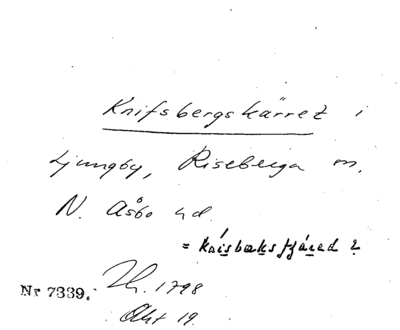 Knifsbergskärret i
Ljungby, Riseberga m,
N. Åsbo hd.
= Knisbæksfjæred ?
Nr 7339. Lh. 1798
Akt 19.